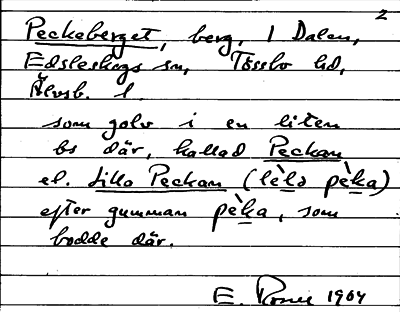 2
Peckeberget, berg, i Dalen,
Edsleskogs sn, Tössbo hd,
Älvsb. l.
som golv i en liten
bs där, kallad Peckan
el. Lilla Peckan (lèla pèka)
efter gumman pèka, som
bodde där.
E. 1904